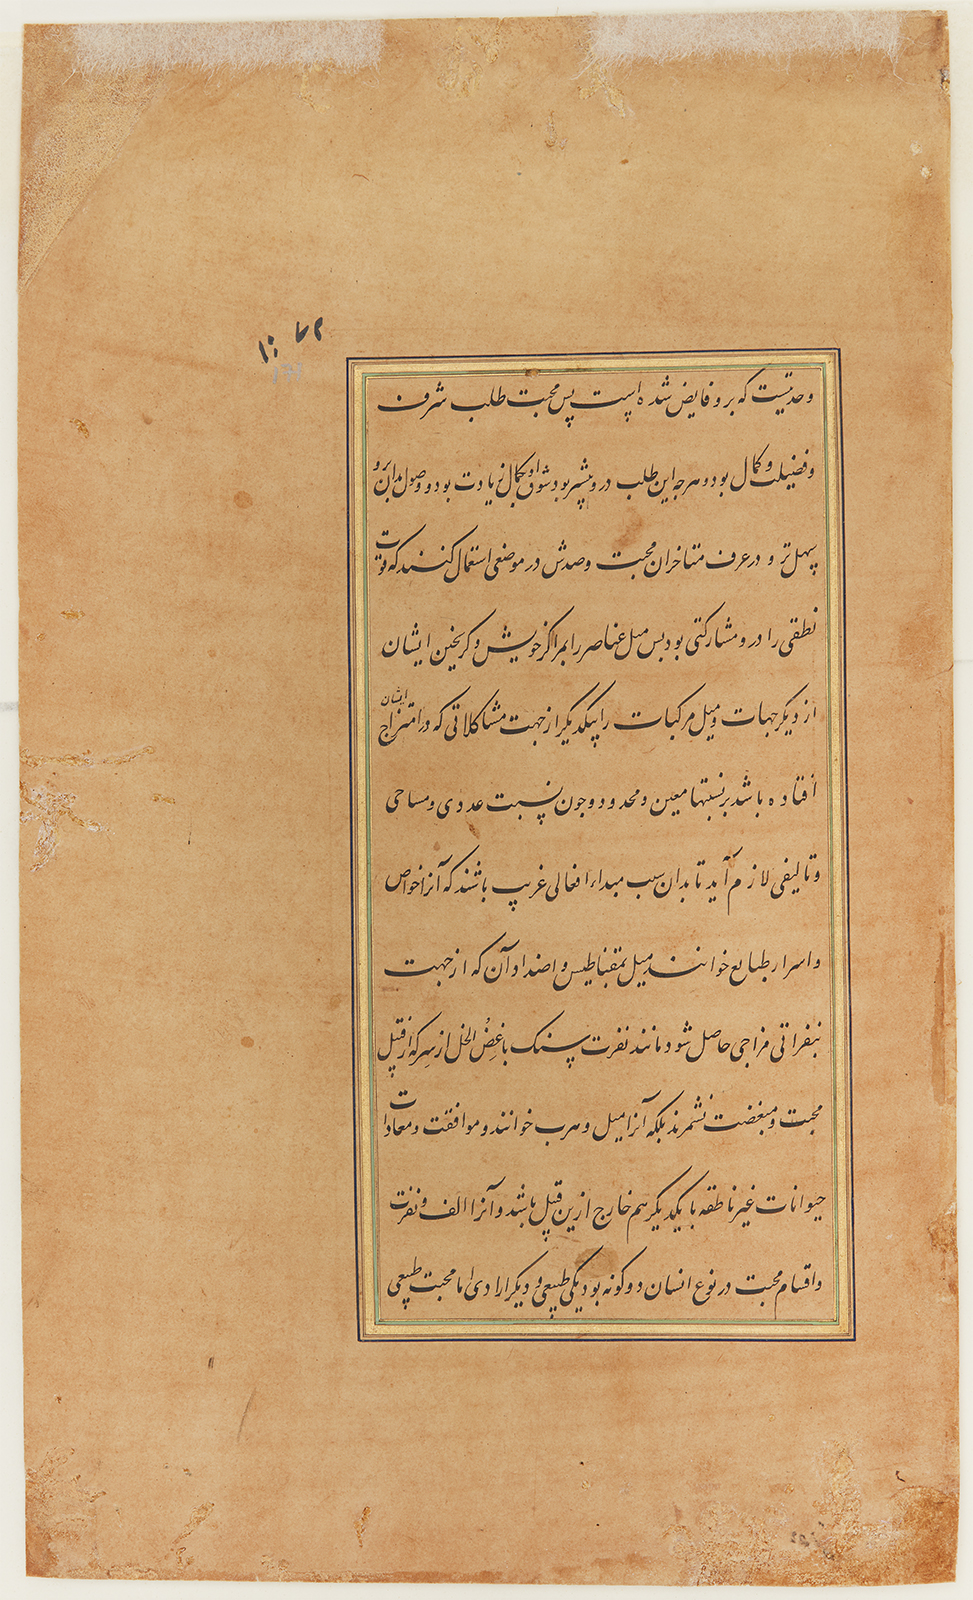 وحدتیست که برو فایض شده است پس محبت طلب شرف
و فضیلت و کمال بود و هرچه این طلب درو بیشتر بود شوق او بکمال زیادت بود و وصول بدان برو
سهل تر و در عرف متاخران محبت وضدش در موضعی استعمال کنند که قوت
نطقی را درو مشارکتی بود پس میل عناصر را بمراکز خویش و کریختن ایشان
از دیکر جهات و میل مرکبات را بیکدیکر از جهت مشاکلاتی که در امتزاج ایشان
افتاده باشد بر نسبتها معین و محدود و چون نسبت عددی و مساحی
و تالیفی لازم آید تا بدان سبب مبداء افعالی غریب باشند که آنرا خواص
و اسرار طبایع خوانند میل بمقناطیس و اضداد آن که از جهت
مزاجی حاصل شود مانند نفرت سنک باغض الخل از سرکه از قبیل
محبت و مبغضت نشمرند بلکه آنرا میل و هرب خوانند و موافقت و معادات
حیوانات غیر ناطقه با یکدیکر هم خارج ازین قبیل باشد و آنرا الف و نفرت
و اقسام محبت در نوع انسان دو کونه بود یکی طبیعی و دیکر ارادی اما محبت طبیعی